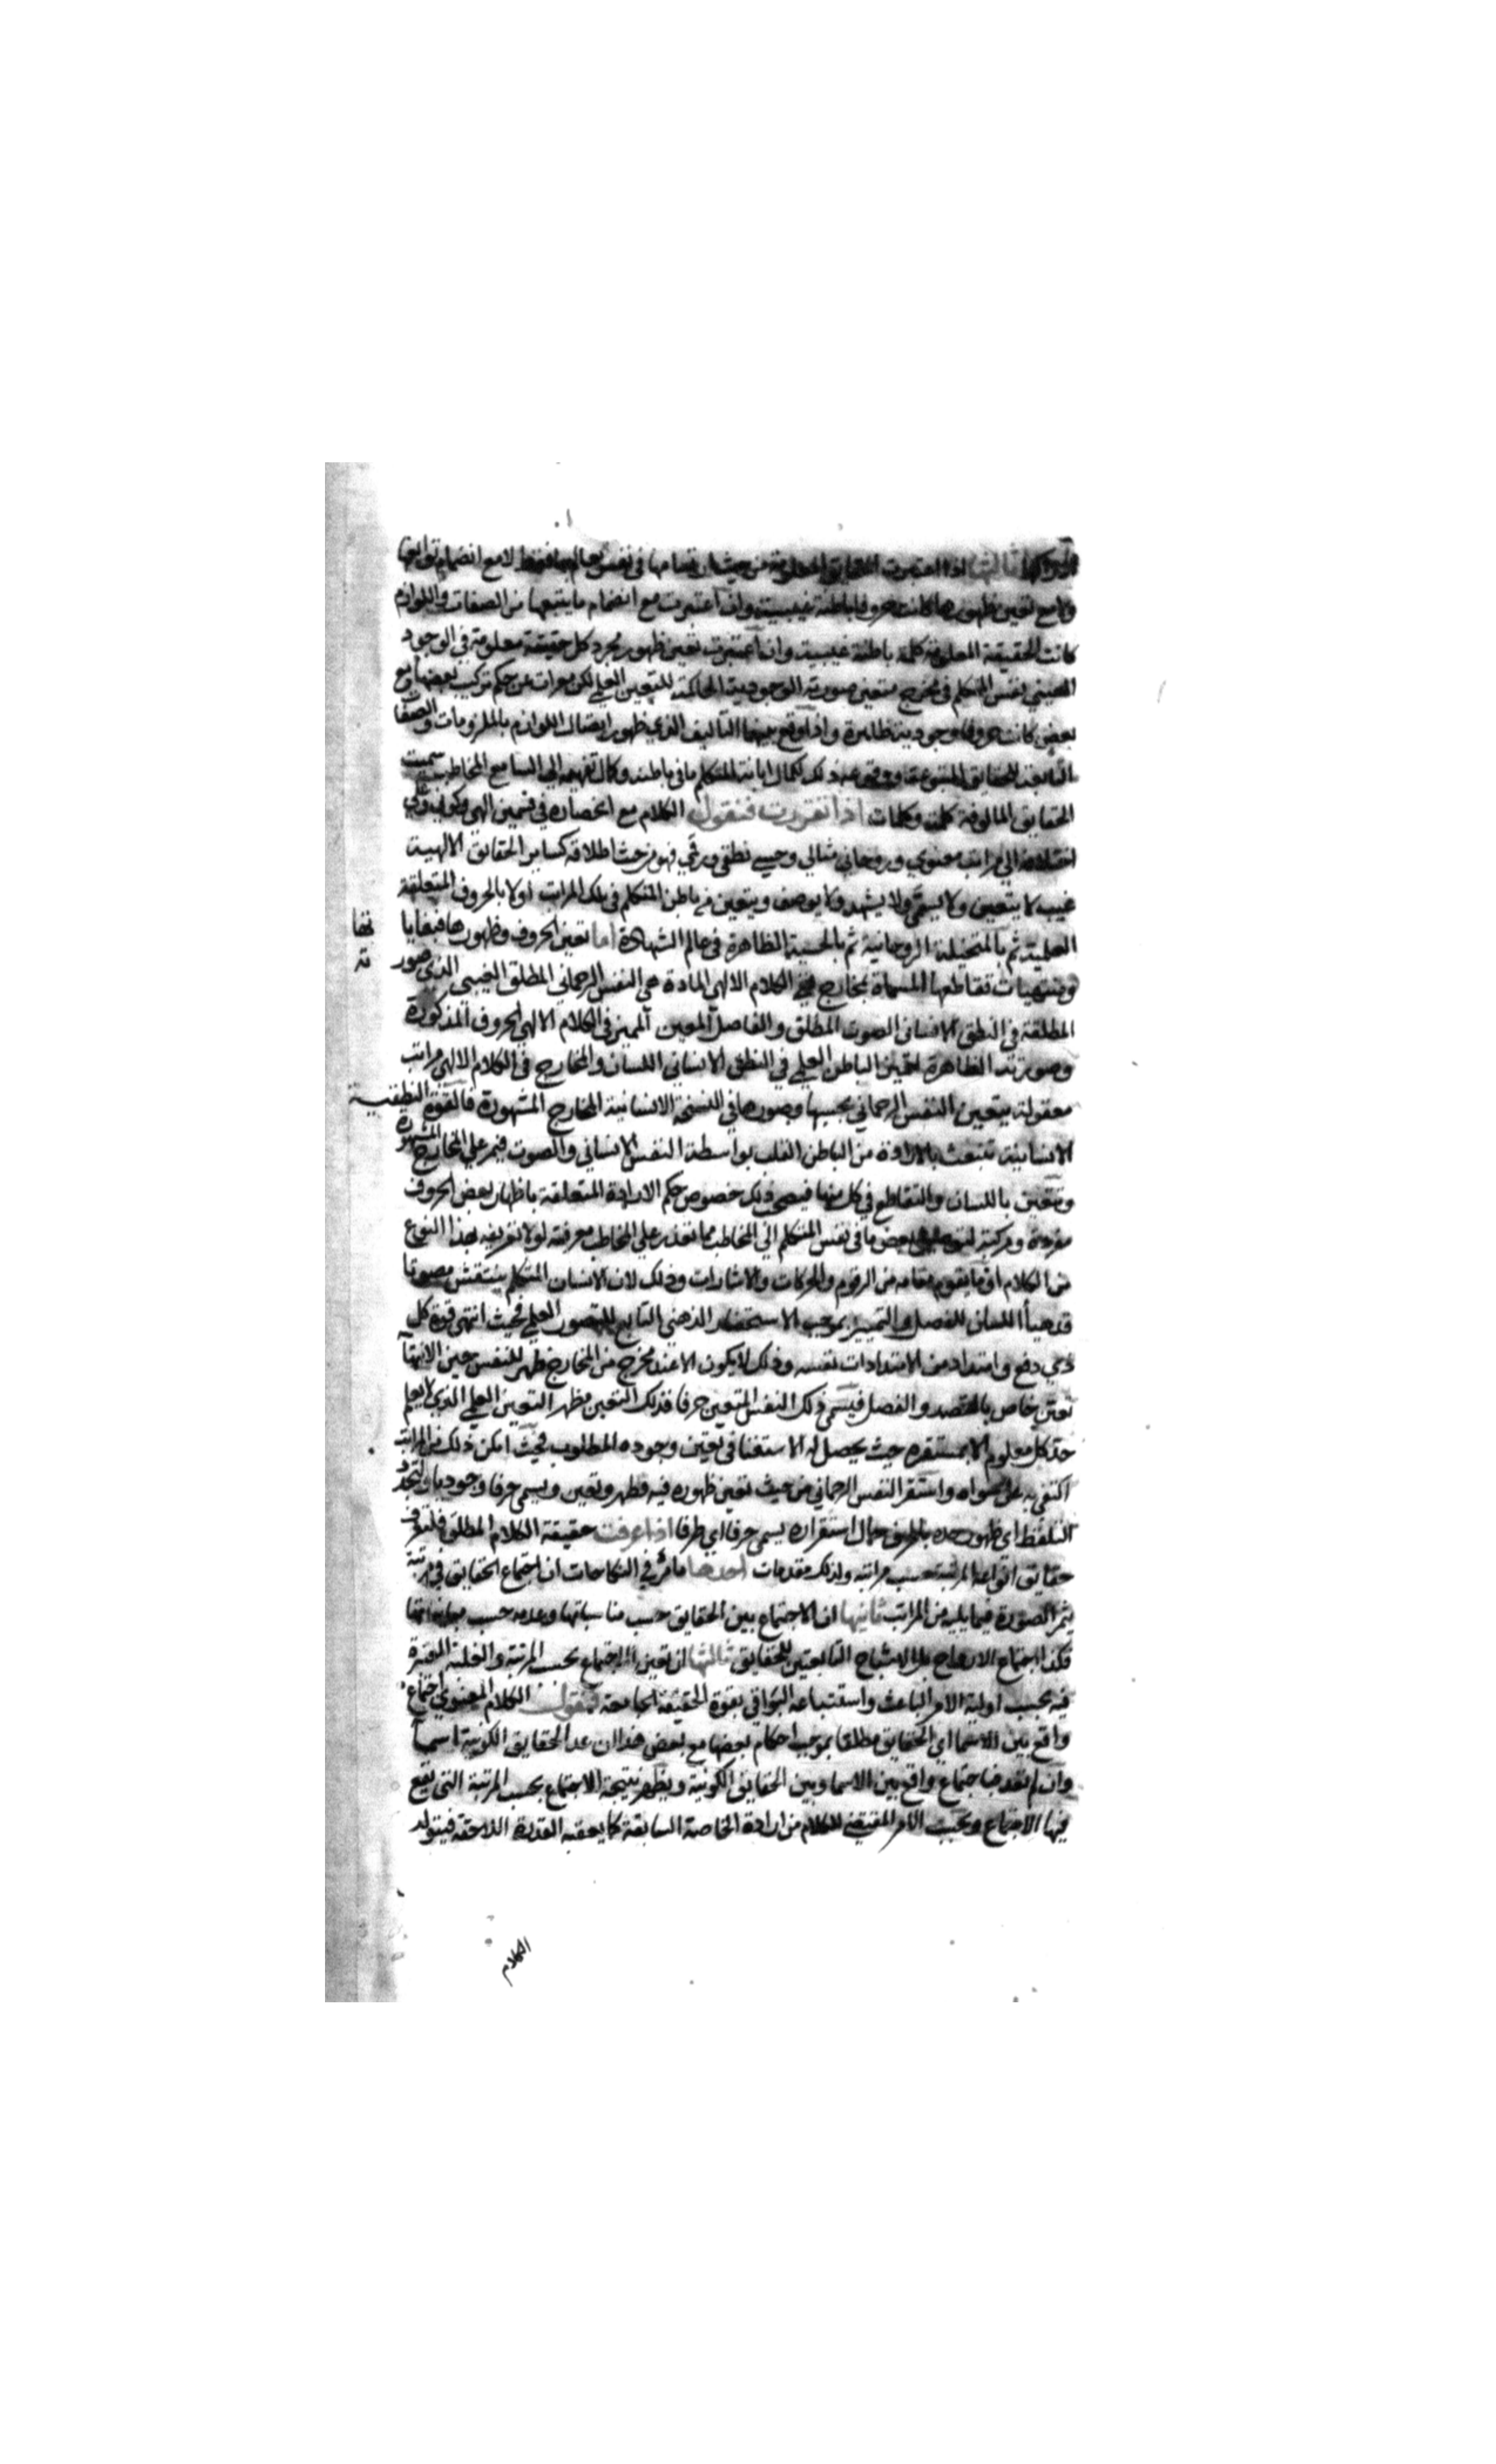 وادراكها ثالثها اذا اعتبرت الحقايق المعلومة من حيث ارتسامها في نفس العالم بها فقط لا مع انضمام توابعها
ولا مع تعين ظهورها كانت حروفا باطنة غيبية وان اعتبرت مع انضمام ما يتبعها من الصفات واللوازم
كانت الحقيقة المعلومة كلمة باطنة غيبية وان اعتبرت تعين ظهور مجرد كل حقيقة معلومة في الوجود
العيني بنفس المتكلم في مخرج متعين صورته الوجودية الحاكية للتعين العلمي لكن معرات عن حكم تركيب بعضها مع
بعض كانت حروفا وجودية ظاهرة واذا وقع بينها التاليف الذي ظهور ايصال اللوازم بالملزومات والصفات
التابعة للحقايق المتبوعة ووقع عند ذلك كمال ابانة المتكلم ما في باطنه وكمال تفهيمه الى السامع المخاطب سميت
الحقايق المالوفة كلمة وكلمات اذا تقررت فنقول الكلام مع انحصاره في قسمين الهي وكوني وعلى
انقسامه الى مراتب معنوي وروحاني مثالي وحسي نطقي ورقمي فهو من حيث اطلاقه كساير الحقايق الالهية
غيب لا يتعين ولا يسمى ولا يشهد ولا يوصف ويتعين من باطن المتكلم في تلك المراتب اولا بالحروف المتعلقة
العلمية ثم بالمتخيلة الروحانية ثم بالحسية الظاهرة في عالم الشهادة اما تعين الحروف وظهورها فبغايا
ومنتهيات تقاطعها المسماة بمخارج ففي الكلام الالهي المادة هي النفس الرحماني المطلق الغيبي الذي صور
المطلقة في النطق الانساني الصوت المطلق والفاصل المعين المميز في الكلام الالهي الحروف المذكورة
وصورته الظاهرة لتميز الباطن العلمي في النطق الانساني اللسان والمخارج في الكلام الالهي مراتب
معقولة يتعين النفس الرحماني بحسبها وصورها في النسخة الانسانية المخارج المشهورة فالقوة النطقية
الانسانية تنبعث بالارادة من الباطن القلب بواسطة النفس الانساني والصوت فيمر على المخارج المشهورة
وتتعين باللسان والتقاطع في كل منها فيصحب ذلك خصوص حكم الارادة المتعلقة باظهار بعض الحروف
مفردة ومركبة لتوصيل بعض ما في نفس المتكلم الى المخاطب مما تعذر على المخاطب معرفته لولا تعريفه بهذا النوع
من الكلام او ما يقوم مقامه من الرقوم والحركات والاشارات وذلك لان الانسان المتكلم يتنفس مصوتا
قد هيأ اللسان للفصل والتمييز بموجب الاستحضار الذهني التابع للتصور العلمي فحيث انتهى قوة كل
ذي دفع وامتداد من الامتدادات نفسه وذلك لا يكون الا عند مخرج من المخارج ظهر للنفس حين الانتهاء
تعين خاص بالقصد والفصل فيسمى ذلك النفس المتعين حرفا فذلك التعين مظهر التعين العلمي الذي لا يعلم
حد كل معلوم الا بمستقره حيث يحصل له الاستغنا في تعين وجوده المطلوب فحيث امكن ذلك من المراتب
اكتفى به عن سواه واستقر النفس الرحماني من حيث تعين ظهوره فيه فظهر وتعين ويسمى حرفا وجوديا ولتجدد
التلفظ اي ظهور حده بالحرف حال استقراره يسمى حرفا اي طرفا اذا عرفت حقيقة الكلام المطلق فلنعرف
حقايق انواعه المرتبة حسب مراتبه ولذلك مقدمات احدها ما مر في النكاحات ان اجتماع الحقايق في مرتبة
يثمر الصورة فيما يليه من المراتب ثانيها ان الاجتماع بين الحقايق حسب مناسباتها وعدمه حسب مبايناتها
فكذا اجتماع الارواح بل الاشباح التابعتين للحقايق ثالثها ان تعين الاجتماع بحسب المرتبة والغلبة المعتبرة
فيه بحسب اولية الامر الباعث واستتباعه البواقي بقوة الحقيقة الجامعة فنقول الكلام المعنوي اجتماع
واقع بين الاسما اي الحقايق مطلقا بموجب احكام بعضها مع بعض هذا ان عد الحقايق الكونية اسمآ
وان لم تعد فاجتماع واقع بين الاسما وبين الحقايق الكونية ويظهر نتيجة الاجتماع بحسب المرتبة التي يقع
فيها الاجتماع وبحسب الامر المقتضي للكلام من ارادة الخاصة السابقة كما يعقبه القدرة اللاحقة فيتولد
الكلام